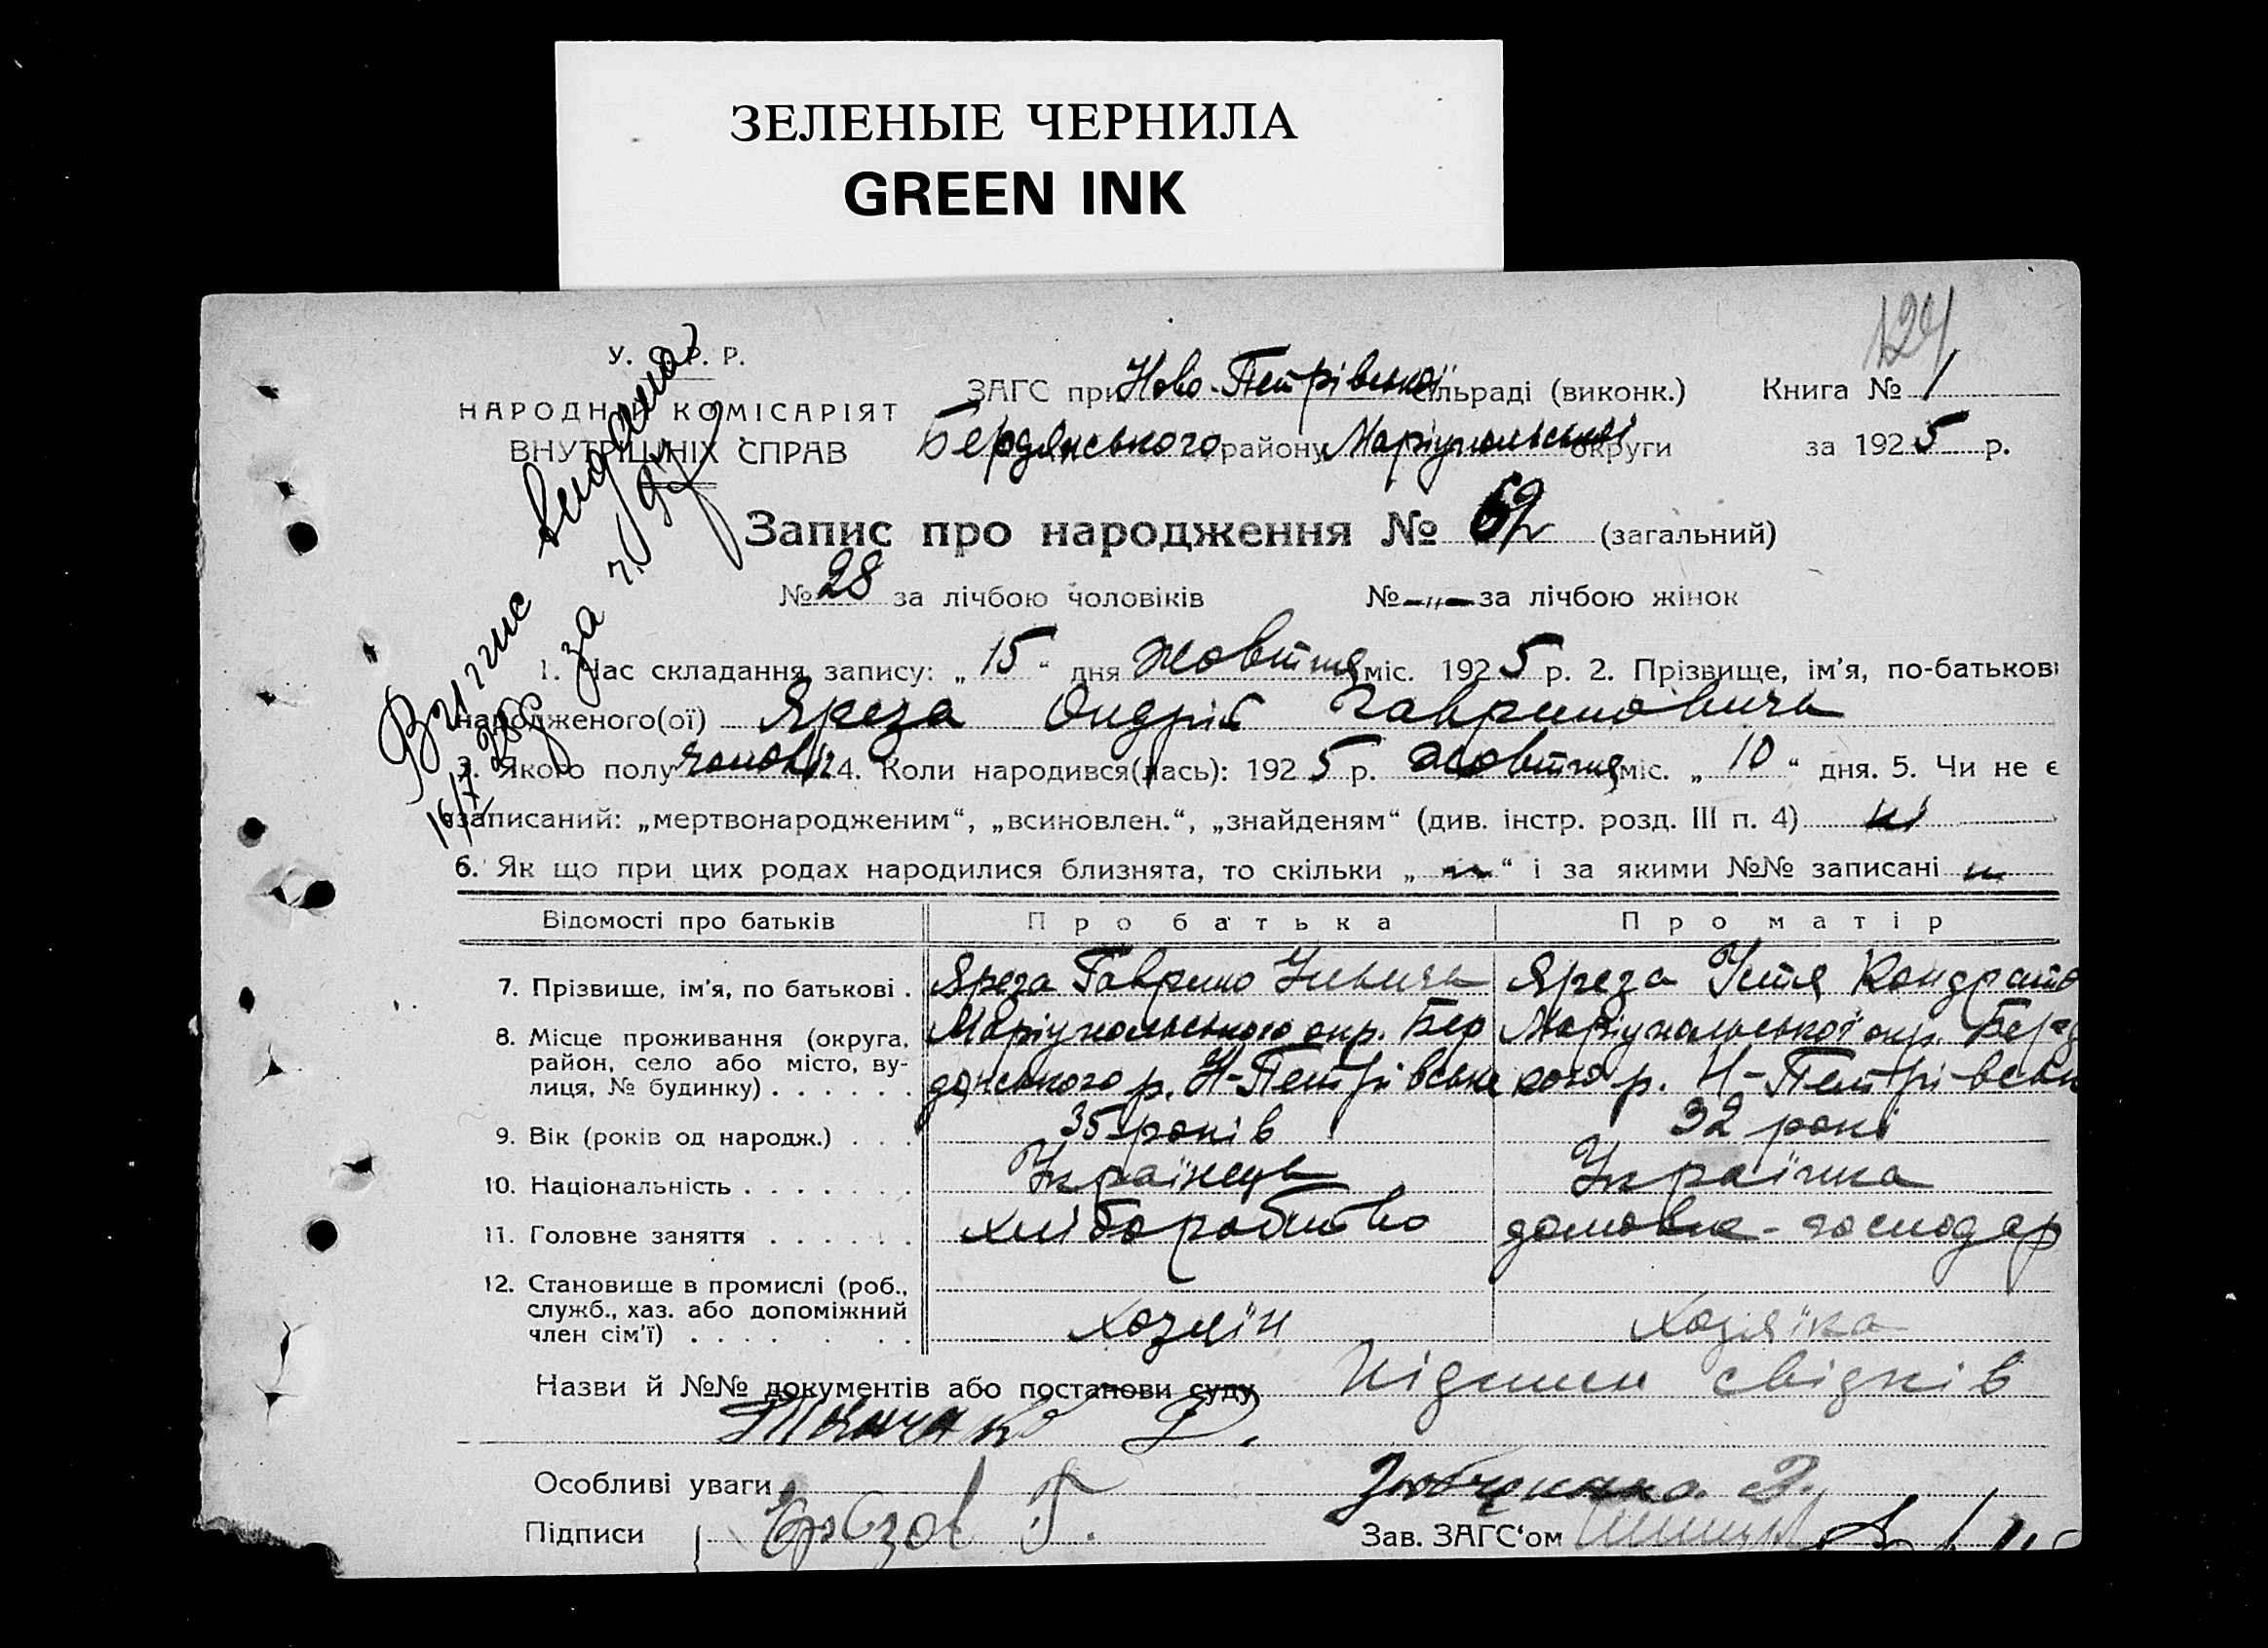 ЗЕЛЕНЫЕ ЧЕРНИЛА
GREEN INK
124
У. С. Р. Р.
НАРОДНИЙ КОМІСАРІЯТ
ВНУТРІШНІХ СПРАВ
ЗАГС при Ново-Петрівської сільраді (виконк.) Книга № 1
Бердянського району Маріупольської округи за 1925 р.
Запис про народження № 69 (загальний)
№ 28 за лічбою чоловіків № -„- за лічбою жінок
1. Час складання запису: „15“ дня жовтня міс. 1925 р. 2. Прізвище, ім'я, по-батькові
народженого(ої) Яреза Ондрій Гаврилович
3. Якого полу чоловік 4. Коли народився(лась): 1925 р. жовтня міс. „10“ дня. 5. Чи не є
записаний: „мертвонародженим“, „всиновлен.“, „знайденям“ (див. інстр. розд. III п. 4) ні
6. Як що при цих родах народилися близнята, то скільки „ “ і за якими №№ записані
Відомості про батьків Про батька Про матір
7. Прізвище, ім'я, по батькові . Яреза Гаврило Яреза Устя Кондратов
8. Місце проживання (округа, район, село або місто, вулиця, № будинку) . . . . . . Маріупольського окр. Бердянського р. Н-Петрівське Маріупольської окр. Бердянського р. Н-Петрівськ
9. Вік (років од народж.) . . . 35 років 32 рокі
10. Національність . . . . . . . Українець Українка
11. Головне заняття . . . . . . хліборобство домовле-господар
12. Становище в промислі (роб., служб., хаз. або допоміжний член сім'ї) . . . . . . хозяїн хозяїка
Назви й №№ документів або постанови суду Підписи свідків
Особливі уваги
Підписи Зав. ЗАГС'ом